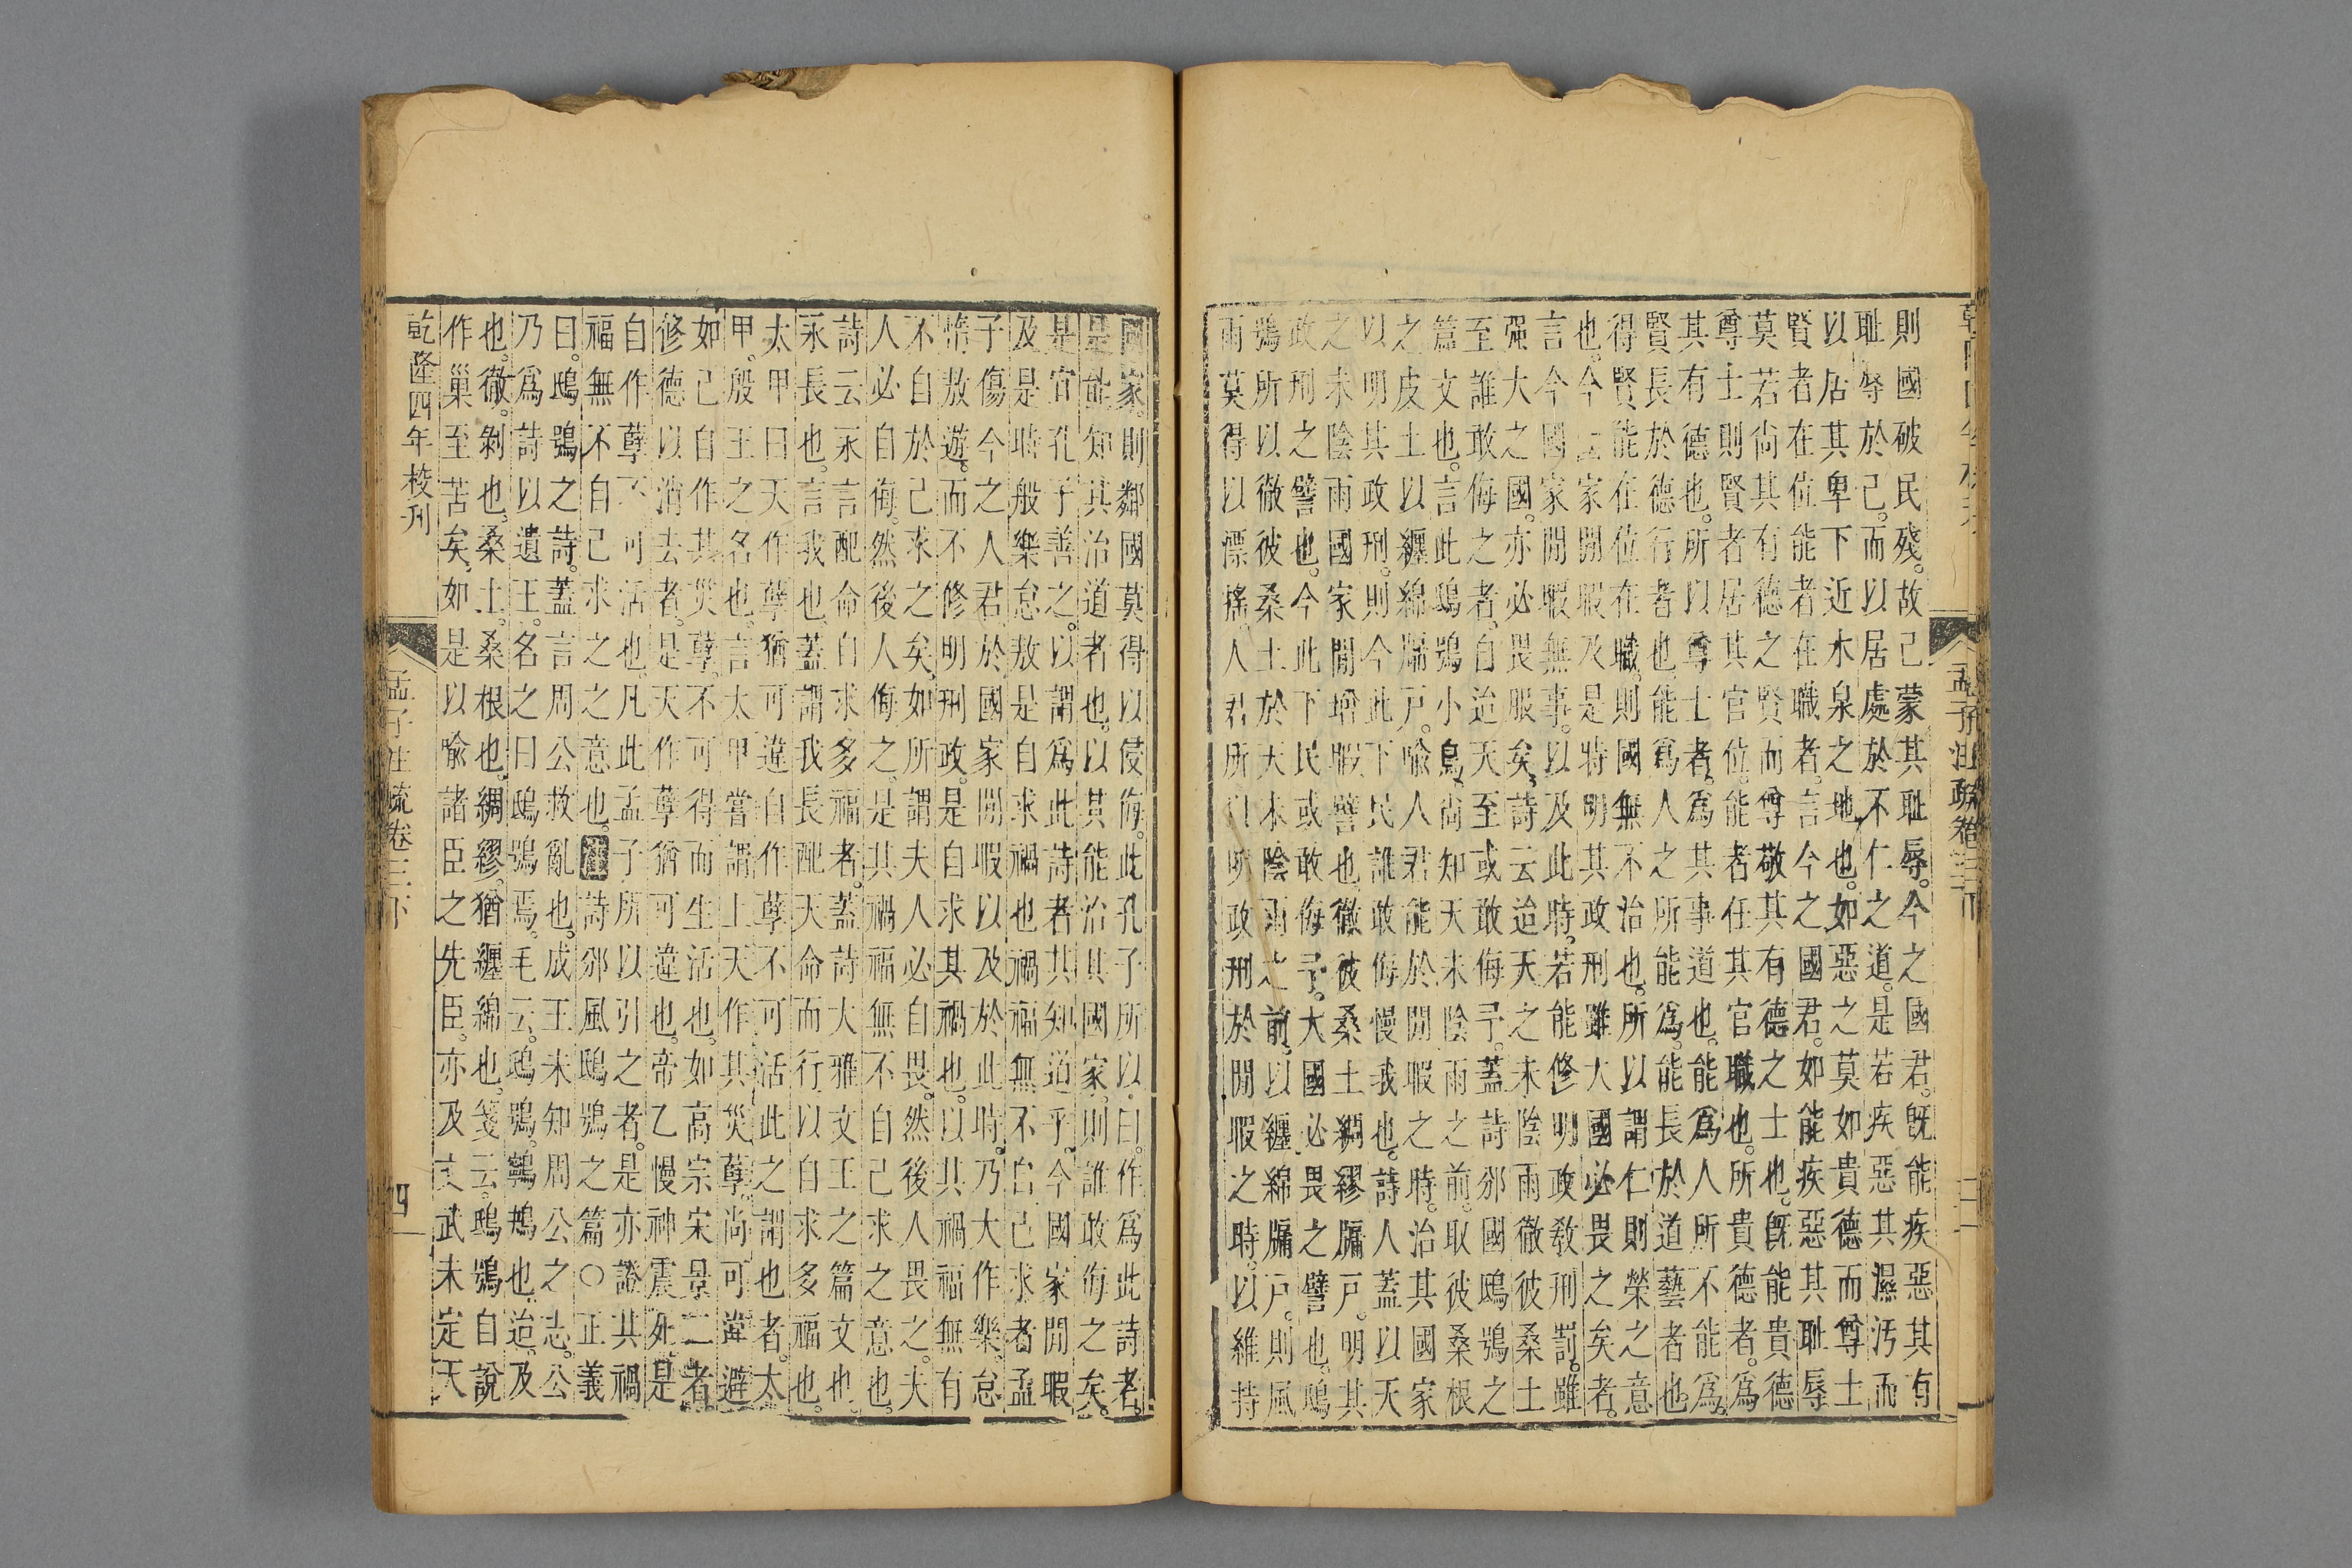 則國破民殘。故己蒙其恥辱。今之國君。旣能疾惡其有
恥辱於己。而以居處於不仁之道。是若疾惡其濕汚而
以居其卑下近水泉之地也。如惡之莫如貴德而尊士
賢者在位能者在職者。言今之國君。如能疾惡其恥辱
莫若尙其有德之賢而尊敬其有德之士也。旣能貴德
尊士則賢者居其官位。能者任其官職也。所貴德者。爲
其有德也。所以尊士者。爲其事道也。能爲人所不能爲。
賢長於德行者也。能爲人之所能爲。能長於道藝者也
得賢能在位在職。則國無不治也。所以謂仁則榮之意
也。今云家閒暇及是特明其政刑雖大國必畏之矣者。
言今國家閒暇無事。以及此時。若能修明政敎刑罰。雖
强大之國。亦必畏服矣。詩云迨天之未陰雨徹彼桑土
至誰敢侮之者。自迨天至或敢侮予。蓋詩邠國鴟鴞之
篇文也。言此鴟鴞小鳥。尙知天未陰雨之前。取彼桑根
之皮土以纏綿牖戶。喩人君能於閒暇之時。治其國家
以明其政刑。則今此下民誰敢侮慢我也。詩人蓋以天
之未陰雨國家閒增暇譬也。徹彼桑土綢繆牖戶。明其
政刑之譬也。今此下民或敢侮予。大國必畏之譬也。鴟
鴞所以徹彼桑土於天未陰雨之前。以纏綿牖戶。則風
雨莫得以漂搖。人君所以明政刑於閒暇之時。以維持
孟子注疏卷三下
國家。則鄰國莫得以侵侮。此孔子所以曰。作爲此詩者。
是能知其治道者也。以其能治其國家。則誰敢侮之矣。
是宜孔子善之。以謂爲此詩者其知道乎。今國家閒暇
及是時般樂怠敖是自求禍也禍福無不自己求者孟
子傷今之人君於國家閒暇以及於此時。乃大作樂。怠
惰敖遊。而不修明刑政。是自求其禍也。以其禍福無有
不自於己求之矣。如所謂夫人必自畏。然後人畏之。夫
人必自侮。然後人侮之。是其禍福無不自己求之意也。
詩云永言配命自求多福者。蓋詩大雅文王之篇文也。
永長也。言我也。蓋謂我長配天命而行以自求多福也。
太甲曰天作孽猶可違自作孽不可活此之謂也者。太
甲。殷王之名也。言太甲嘗謂上天作其災孽。尙可違避
如己自作其災孽。不可得而生活也。如高宗宋景二者
修德以消去者。是天作孽猶可違也。帝乙慢神震死。是
自作孽不可活也。凡此孟子所以引之者。是亦證其禍
福無不自己求之之意也。詩邠風鴟鴞之篇○正義
曰。鴟鴞之詩。蓋言周公救亂也。成王未知周公之志。公
乃爲詩以遺王。名之曰鴟鴞焉。毛云。鴟鴞。鸋鴂也。迨。及
也。徹。剝也。桑土。桑根也。綢繆。猶纏綿也。箋云。鴟鴞自說
作巢至苦矣。如是以喩諸臣之先臣。亦及文武未定天
乾隆四年校刊
孟子注疏卷三下
四